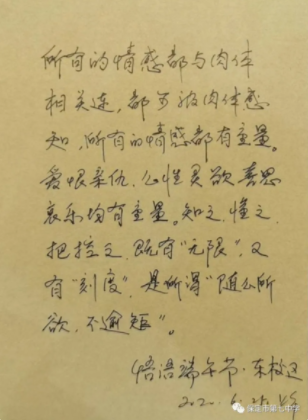 所有的情感都与肉体
相关连,都可被肉体感
知,所有的情感都有重量。
爱恨亲仇,心性灵欲,喜思
哀乐均有重量。知之,懂之,
把控之,既有“无限”,又
有“刻度”,是所谓“随心所
欲,不逾矩”。
悟语端午节·东校区
2020.6.25